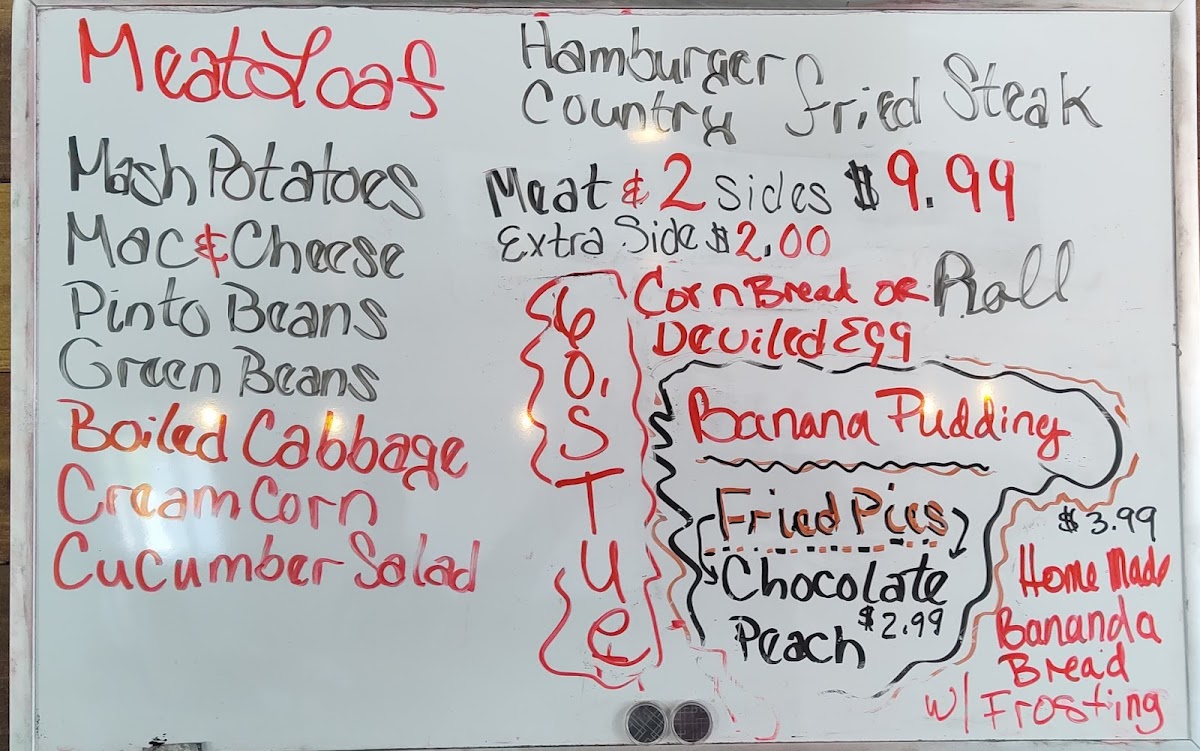 Meatoloaf
Mash Potatoes
Mac & Cheese
Pinto Beans
Green Beans
Boiled Cabbage
Cream Corn
Cucumber Salad
Hamburger
Country fried Steak
Meat & 2 Sides $9.99
Extra Side $2.00
Corn Bread OR Roll
Deviled Egg
Banana Pudding
Fried Pies
Chocolate
Peach $2.99
$3.99
Home Made
Bananda
Bread
w/ Frosting